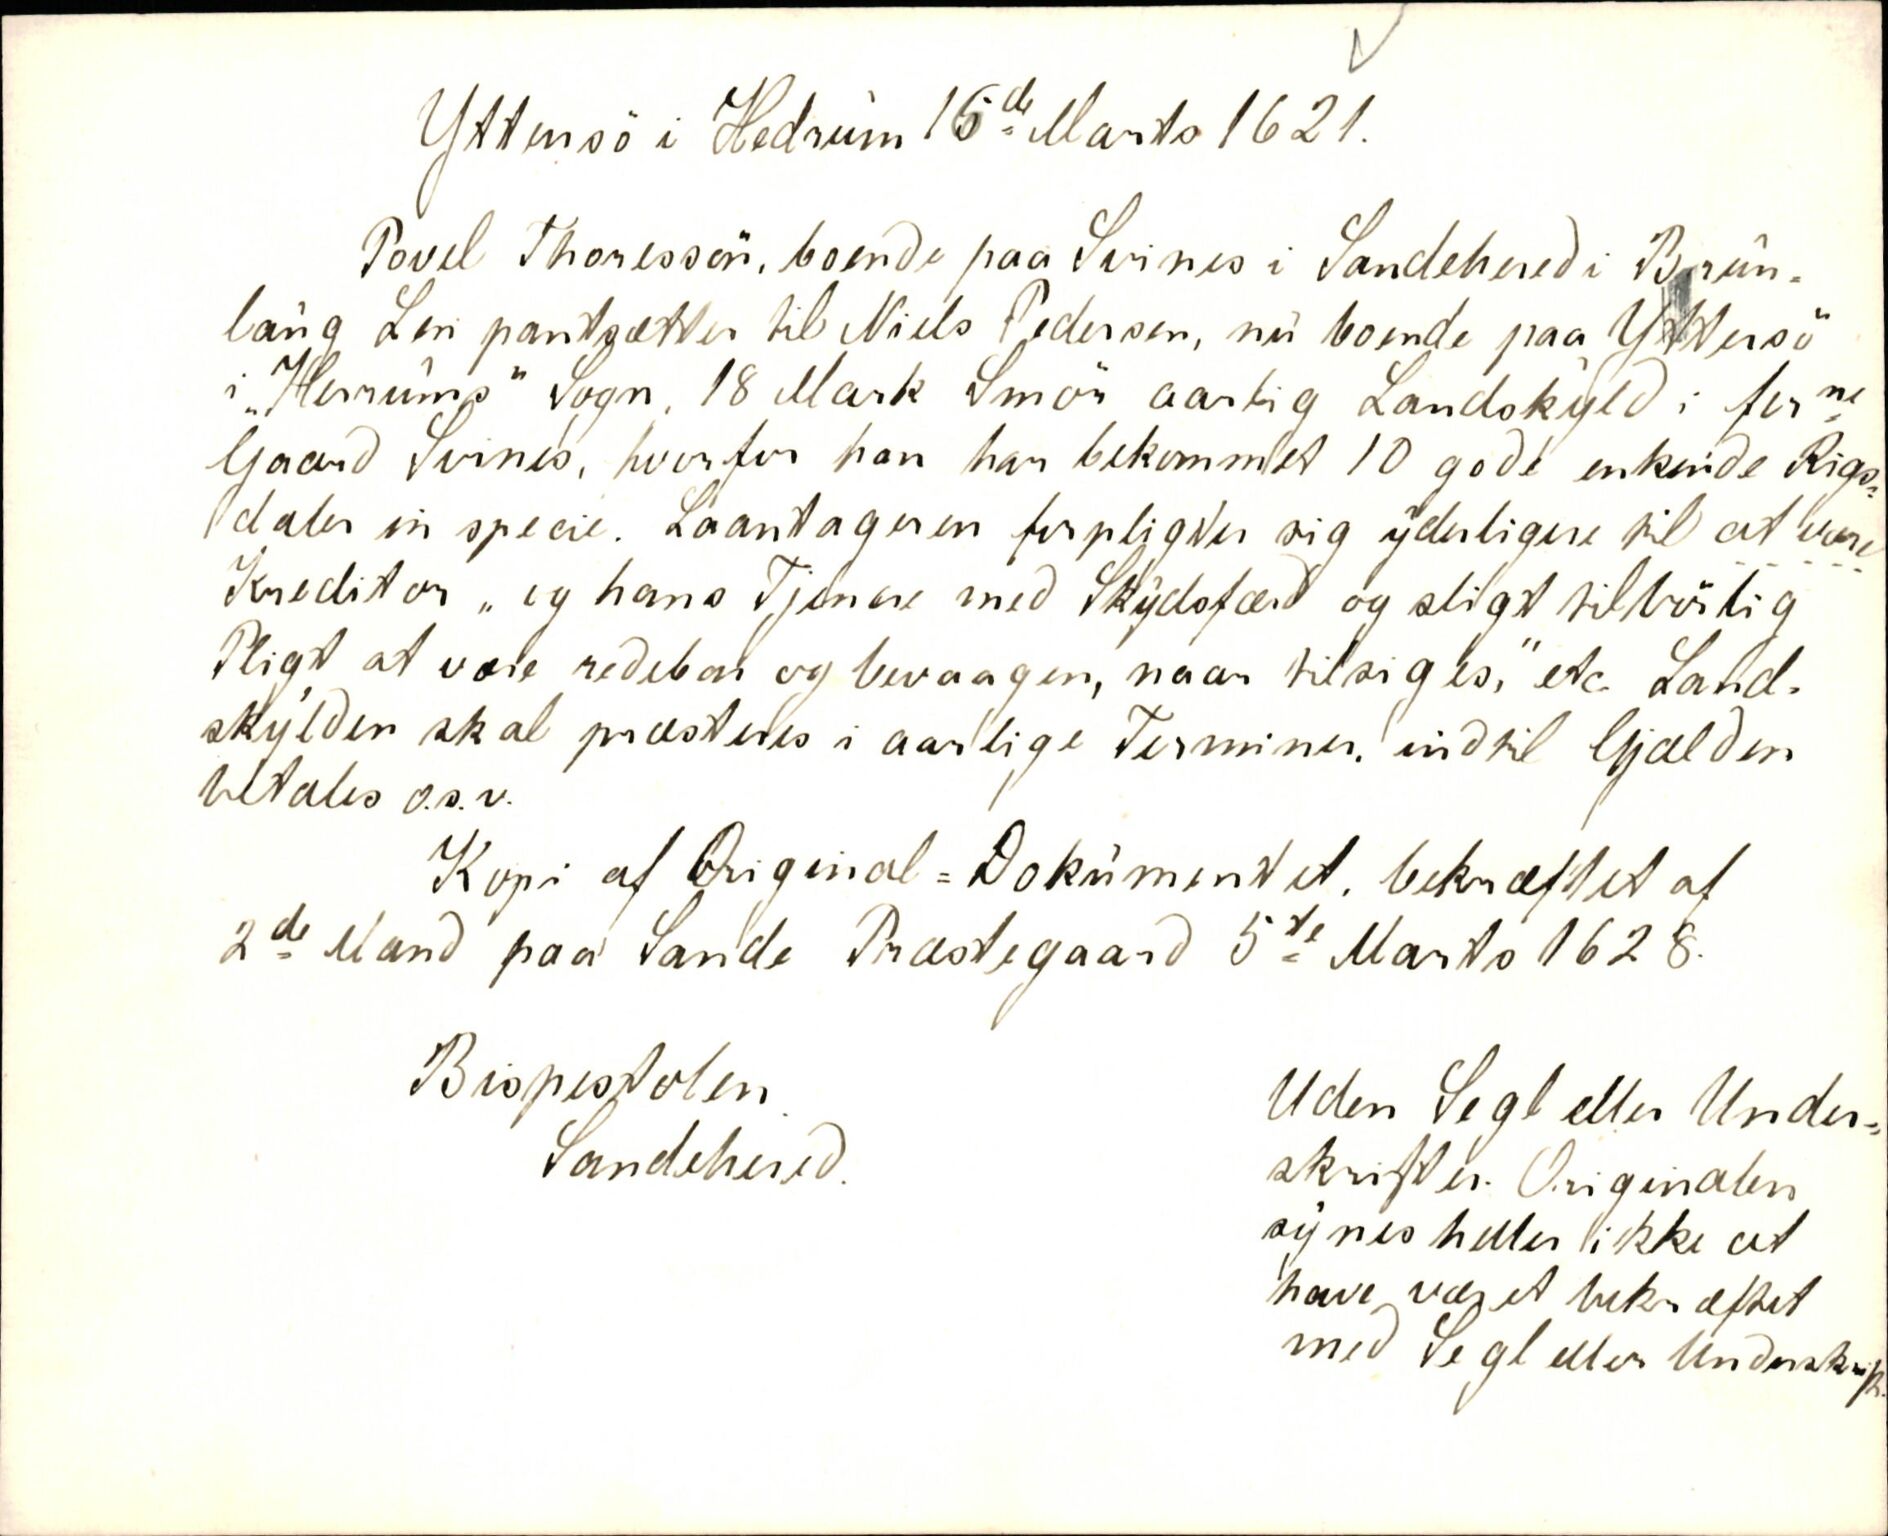 Yttersö i Hedrum 15de Marts 1621.
Povel Thoressön, boende paa Svines i Sandehered i Brun-
laug Len pantsætter til Niels Pedersen, nu boende paa Yttersö
i „Herrums" Sogn, 18 Mark Smör aarlig Landskyld i forne
Gaard Svines, hvorfor han har bekommet 10 gode enkende Rigs-
daler in specie. Laantageren forpligter sig yderligere til at være
Kreditor „og hans Tjenere med Skydsfærd og sligt tilbörlig
Pligt at være redebon og bevaagen, naar tilsiges," etc. Land-
skylden skal præsteres i aarlige Terminer, indtil Gjælden
betales o.s.v.
Kopi af Original-Dokumentet, bekræftet af
2de Mand paa Sande Præstegaard 5te Marts 1628.
Bispestolen
Sandehered.
Uden Segl eller Under-
skrifter. Originalen
synes heller ikke at
have været bekræftet
med Segl eller Underskrift.